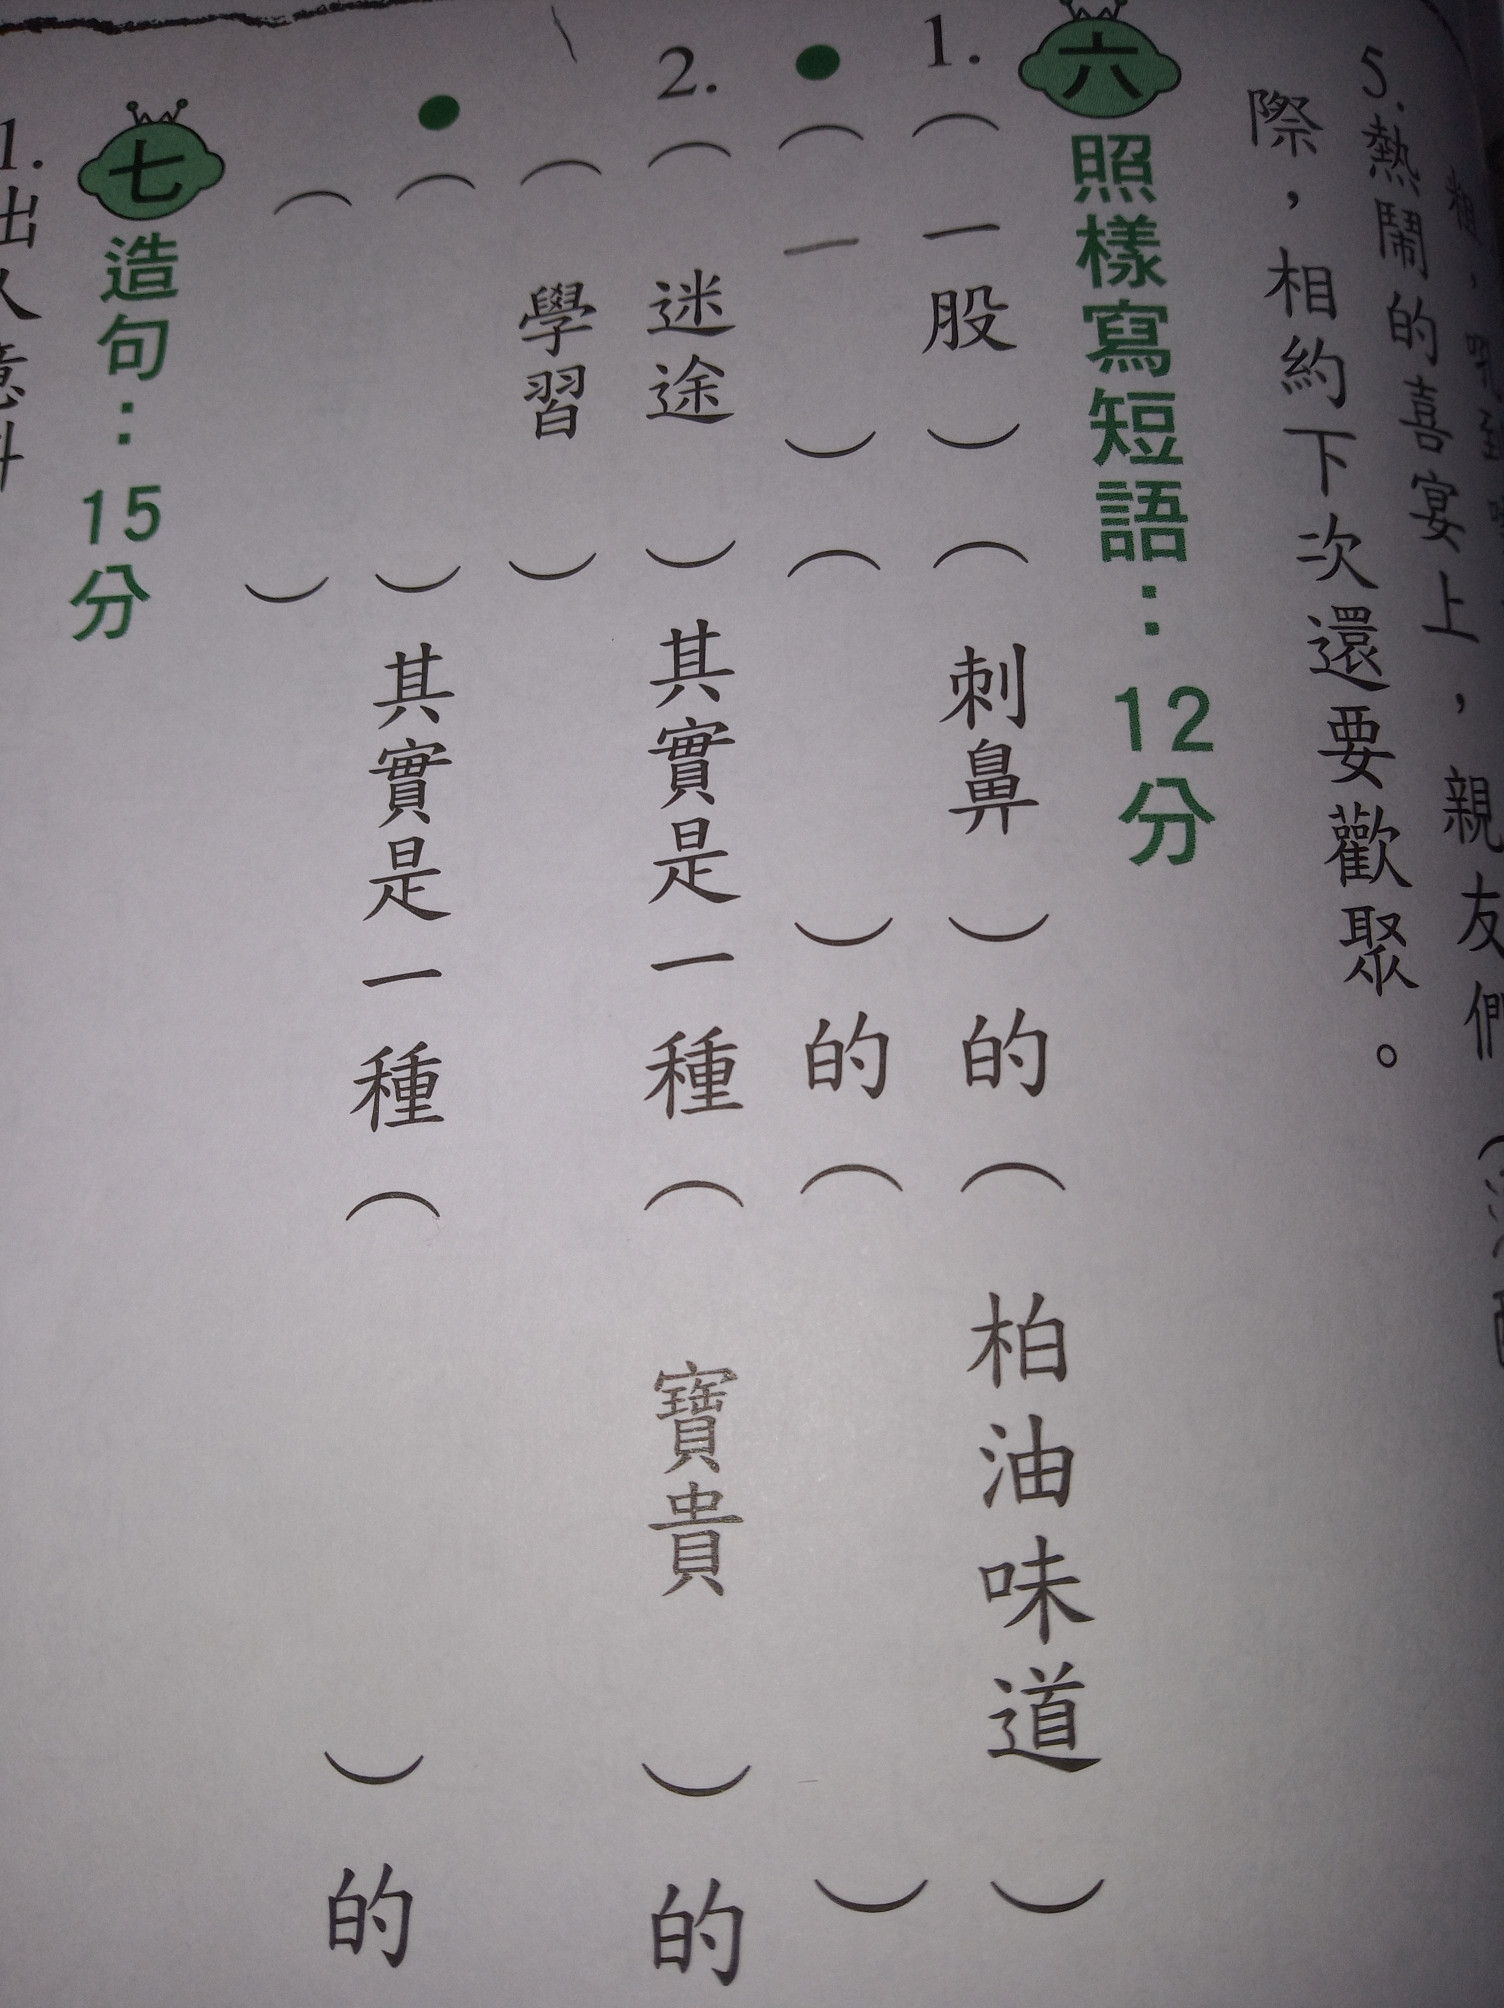 5.熱鬧的喜宴上，親友們
際，相約下次還要歡聚。
六 照樣寫短語：12分
1.（一股）（刺鼻）的（柏油味道）
●（一　）（　）的（　）
2.（迷途）其實是一種（寶貴）的
（學習）
●（　）其實是一種（　）的
（　）
七 造句：15分
1.出人意料